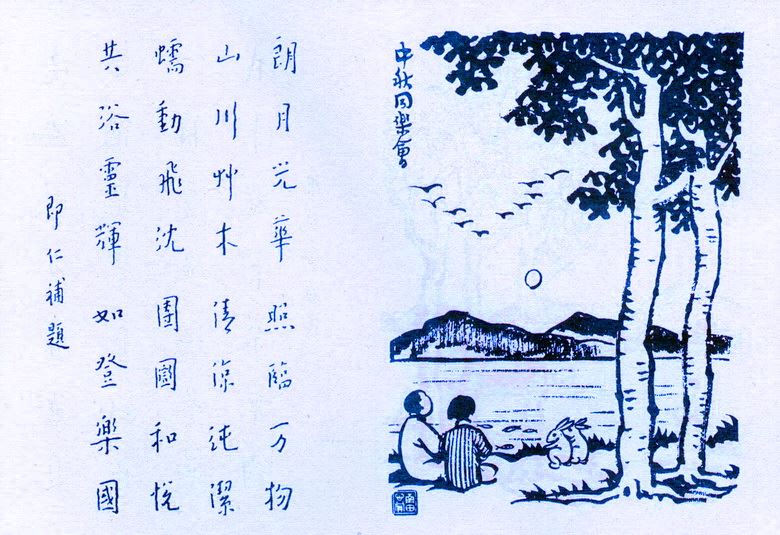 中秋同樂會
朗月光華照臨万物
山川艸木清涼純潔
蠕動飛沈團圓和悅
共浴靈輝如登樂國
即仁補題